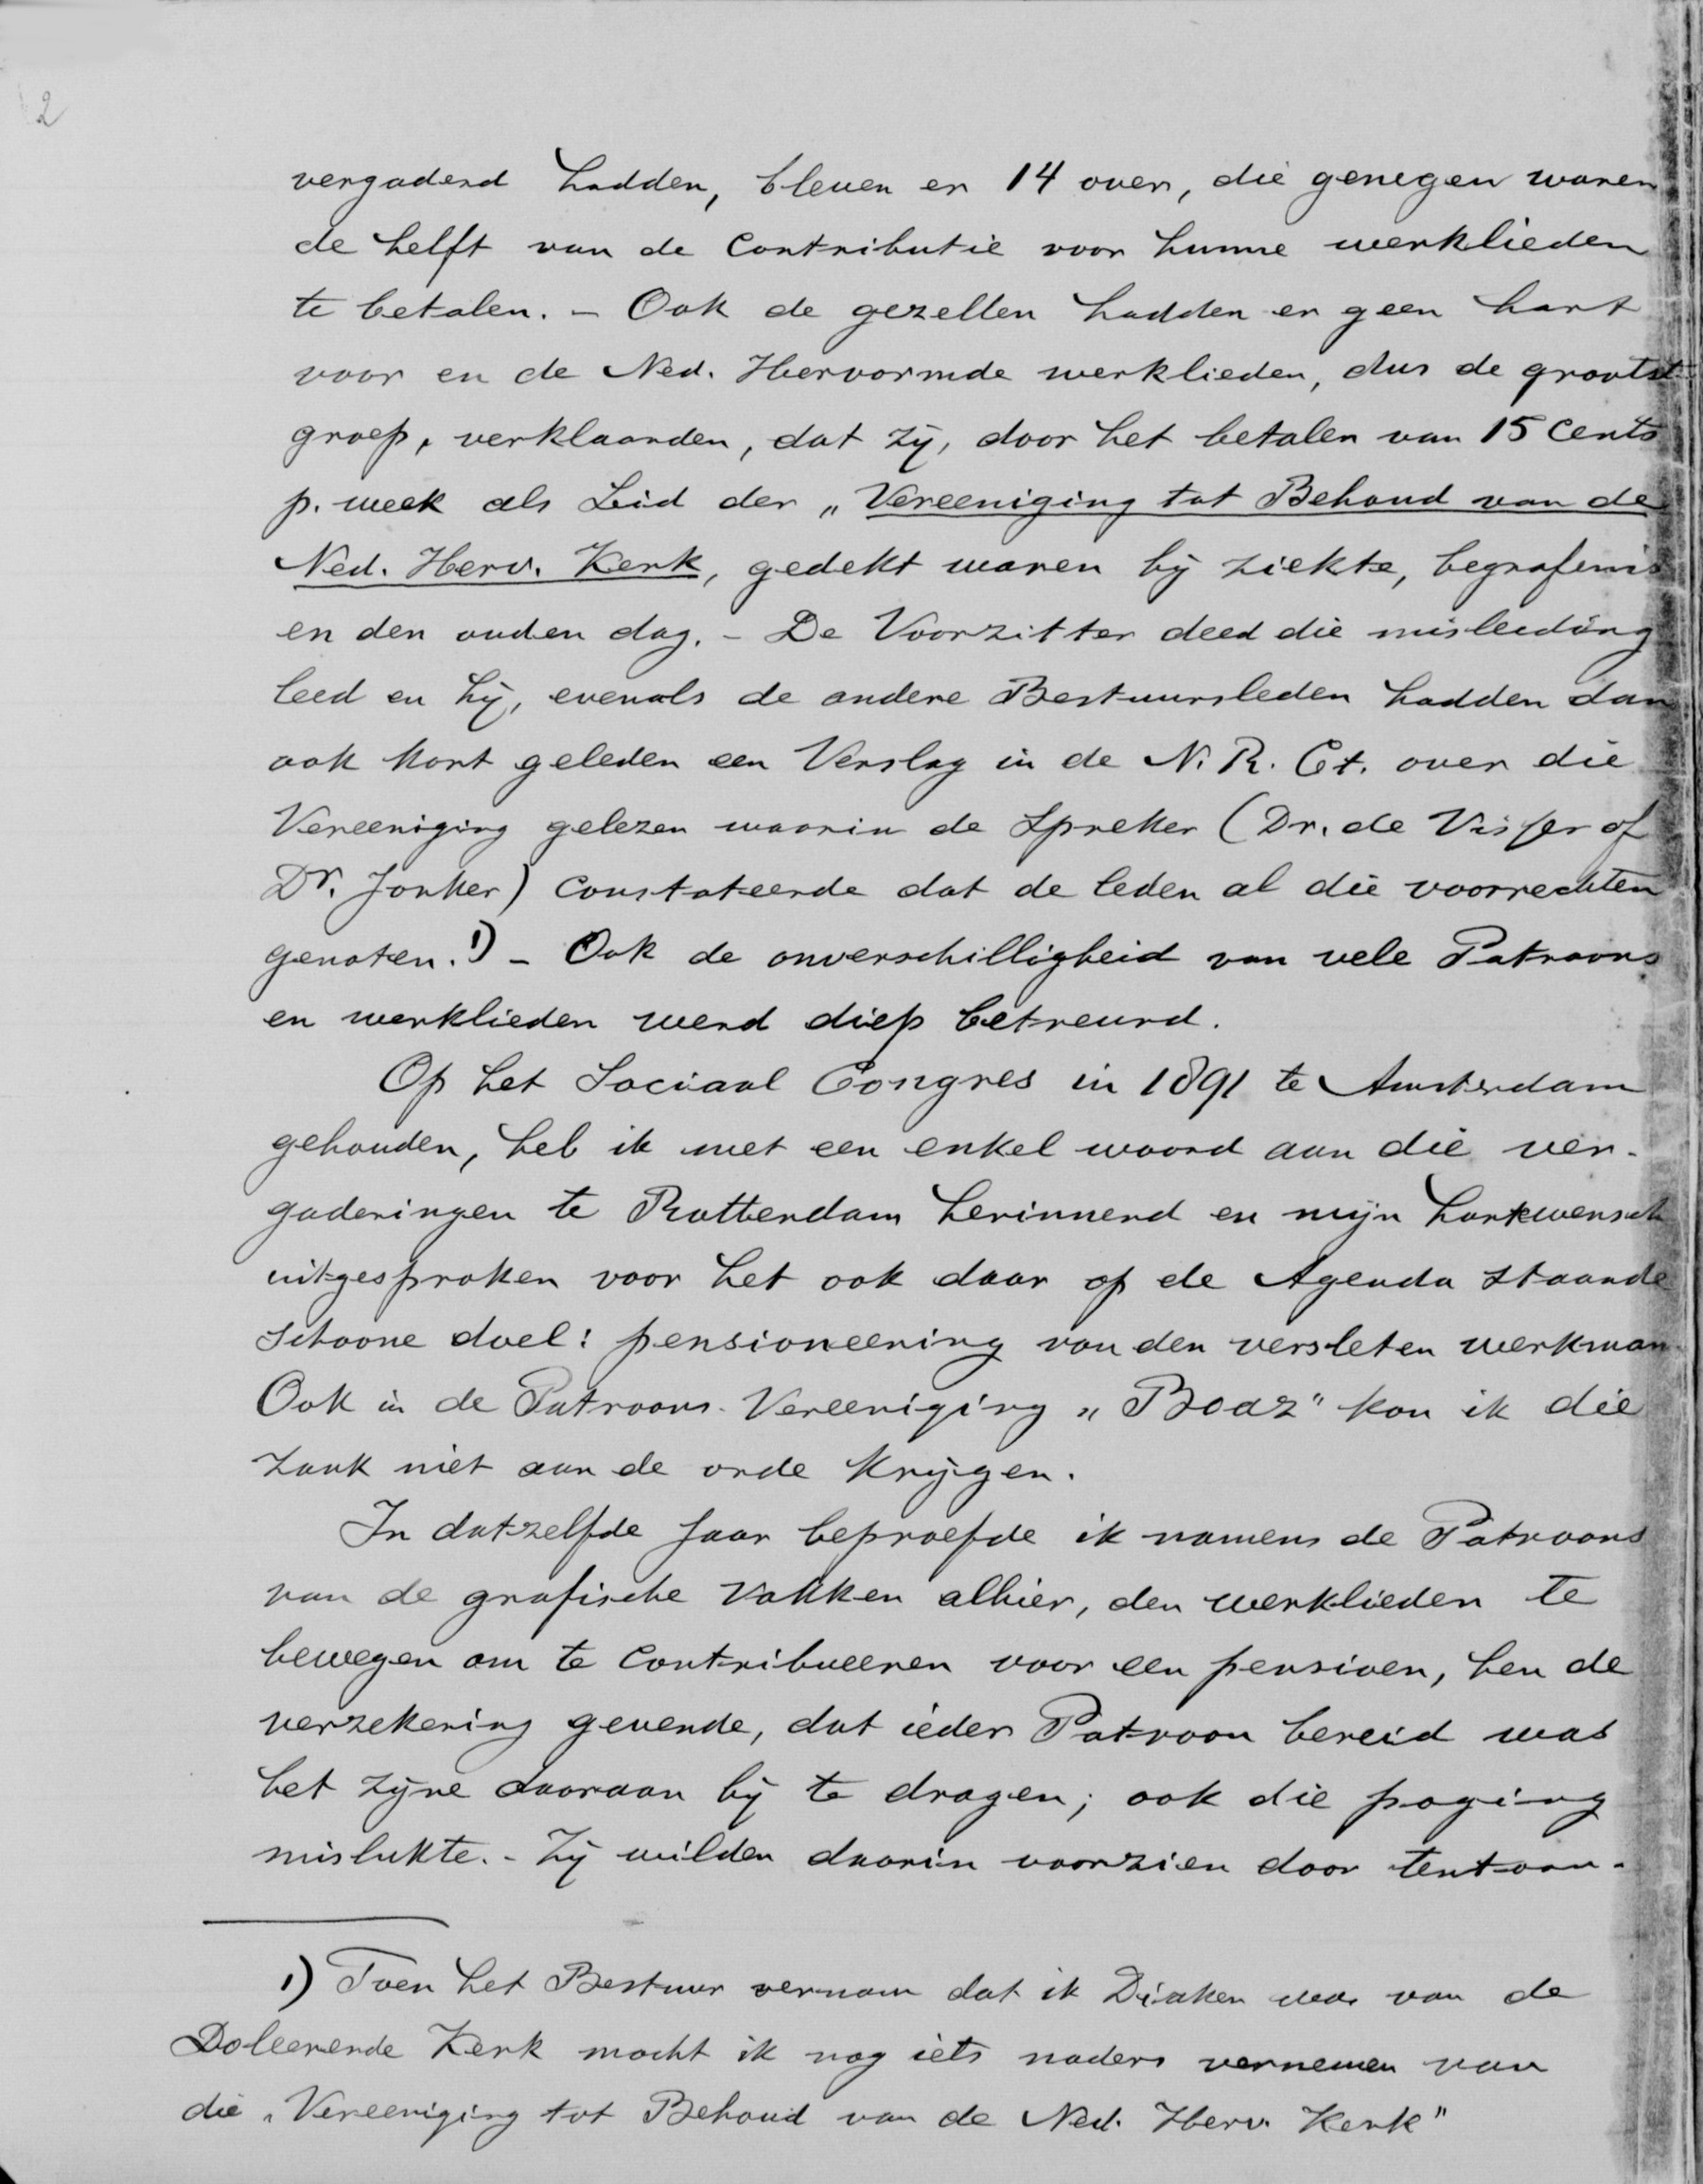 2
vergaderd hadden, bleven er 14 over, die genegen waren
de helft van de Contributie voor hunne werklieden
te betalen. – Ook de gezellen hadden er geen hart
voor en de Ned. Hervormde werklieden, dus de grootst
groep, verklaarden, dat zij, door het betalen van 15 Cents
p. week als Lid der „Vereeniging tot Behoud van de
Ned. Herv. Kerk, gedekt waren bij ziekte, begrafenis
en den ouden dag. – De Voorzitter deed die misleiding
leed en hij, evenals de andere Bestuursleden hadden dan
ook kort geleden een Verslag in de N. R. Ct. over die
Vereeniging gelezen waarin de Spreker (Dr. de Visser of
Dr. Jonker) Constateerde dat de leden al die voorrechten
genoten. 1) – Ook de onverschilligheid van vele Patroons
en werklieden werd diep betreurd.
Op het Sociaal Congres in 1891 te Amsterdam
gehouden, heb ik met een enkel woord aan die ver-
gaderingen te Rotterdam herinnerd en mijn hartewensch
uitgesproken voor het ook daar op de Agenda staande
schoone doel: pensioneering van den versleten werkman.
Ook in de Patroons-Vereeniging „Boaz" kon ik die
zaak niet aan de orde krijgen.
In datzelfde jaar beproefde ik namens de Patroons
van de grafische Vakken alhier, den werklieden te
bewegen om te Contribueeren voor een pensioen, hen de
verzekering gevende, dat ieder Patroon bereid was
het zijne daaraan bij te dragen; ook die poging
mislukte. – Zij wilden daarin voorzien door tentoon-
1) Toen het Bestuur vernam dat ik Diaken was van de
Doleerende Kerk mocht ik nog iets naders vernemen van
die „Vereeniging tot Behoud van de Ned. Herv. Kerk"